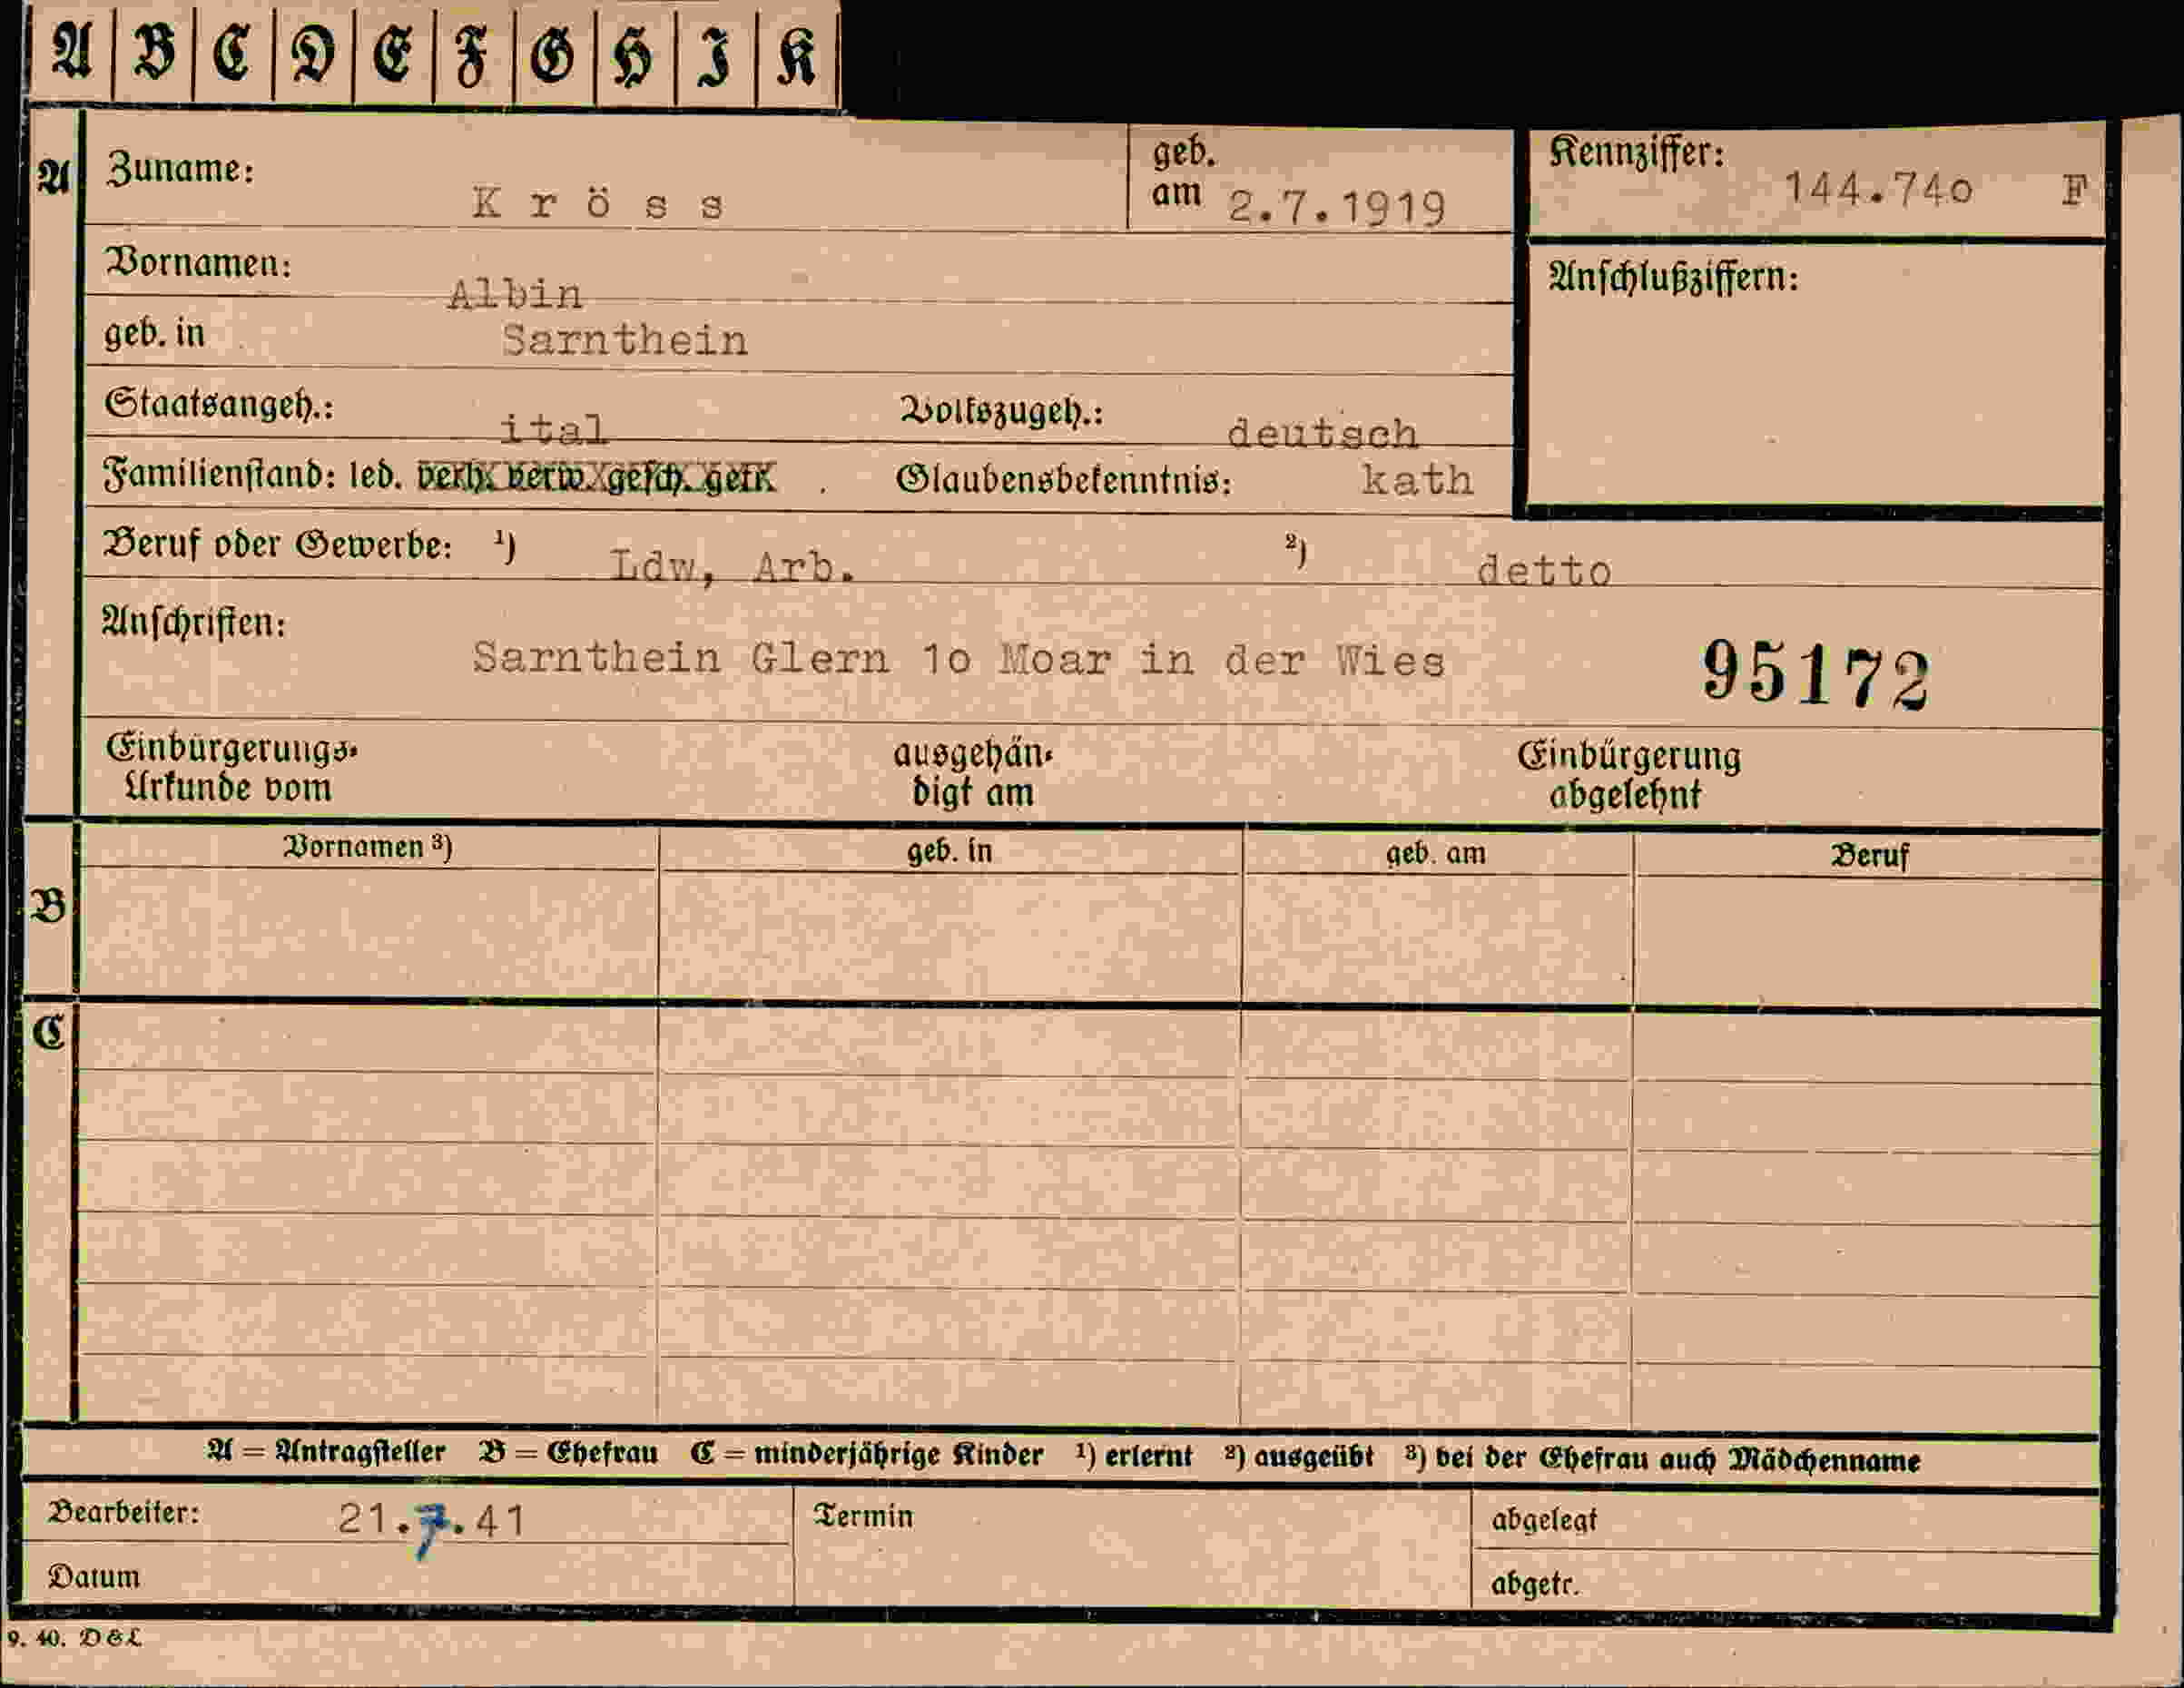 A B C D E F G H I K
A Zuname: Kröss geb. am 2.7.1919 Kennziffer: 144.74o F
Vornamen: Albin Anschlußziffern:
geb. in Sarnthein
Staatsangeh.: ital Volkszugeh.: deutsch
Familienstand: led. verh. verw. gesch. getr. Glaubensbekenntnis: kath
Beruf oder Gewerbe: ¹) Ldw, Arb. ²) detto
Anschriften: Sarnthein Glern 1o Moar in der Wies 95172
Einbürgerungs- ausgehän- Einbürgerung
Urkunde vom digt am abgelehnt
Vornamen ³) geb. in geb. am Beruf
B
C
A = Antragsteller B = Ehefrau C = minderjährige Kinder ¹) erlernt ²) ausgeübt ³) bei der Ehefrau auch Mädchenname
Bearbeiter: 21.7.41 Termin abgelegt
Datum abgetr.
9. 40. D&L